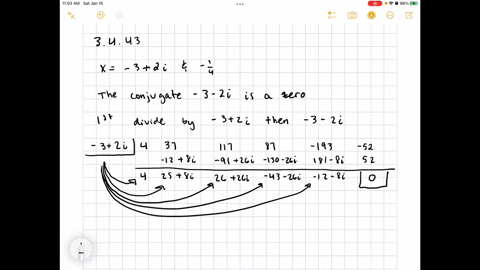 11:03 AM Sat Jan 15
98%
3.4.43
x = -3+2i & -1/4
The conjugate -3-2i is a zero
1st divide by -3+2i then -3-2i
-3+2i 4 37 117 87 -193 -52
-12+8i -91+26i -130-26i 181-8i 52
4 25+8i 26+26i -43-26i -12-8i 0